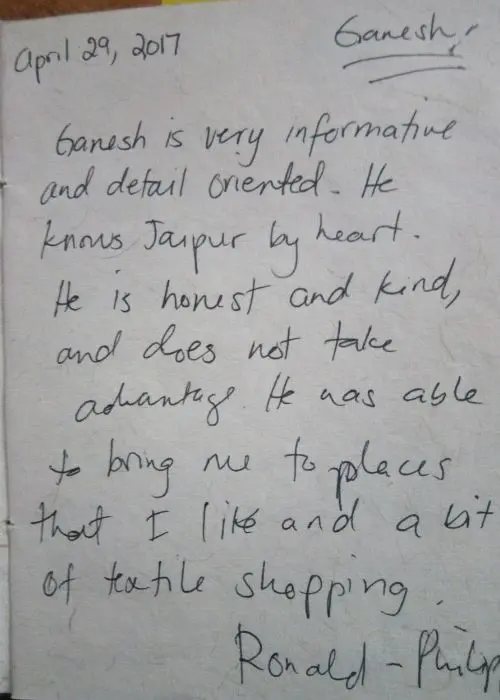 April 29, 2017
Ganesh
Ganesh is very informative
and detail oriented. He
knows Jaipur by heart.
He is honest and kind,
and does not take
advantage. He was able
to bring me to places
that I like and a bit
of textile shopping.
Ronald - Philip